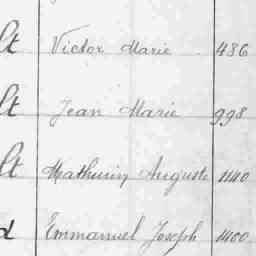 lt Victor Marie 486
lt Jean Marie 998
lt Mathurin Auguste 1140
d Emmanuel Joseph 1400